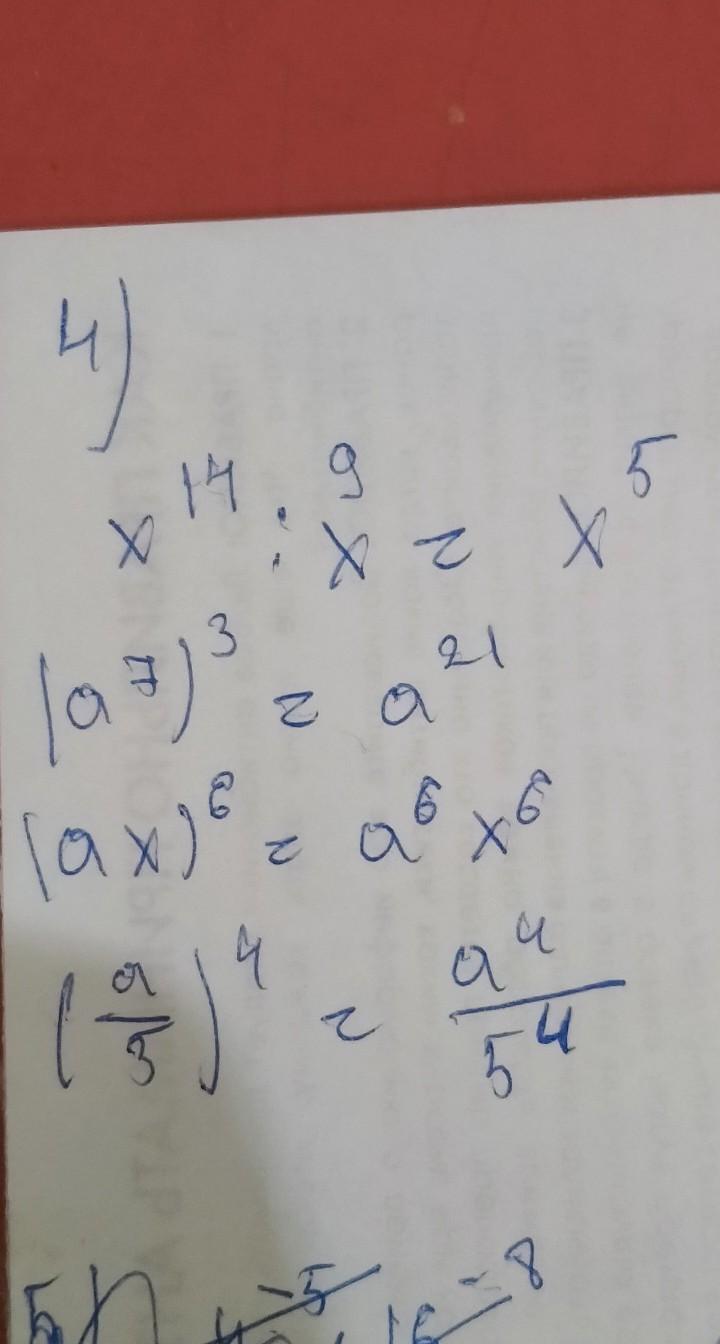 4)
x¹⁴ : x⁹ = x⁵
(a⁷)³ = a²¹
(ax)⁶ = a⁶x⁶
(a/5)⁴ = a⁴/5⁴